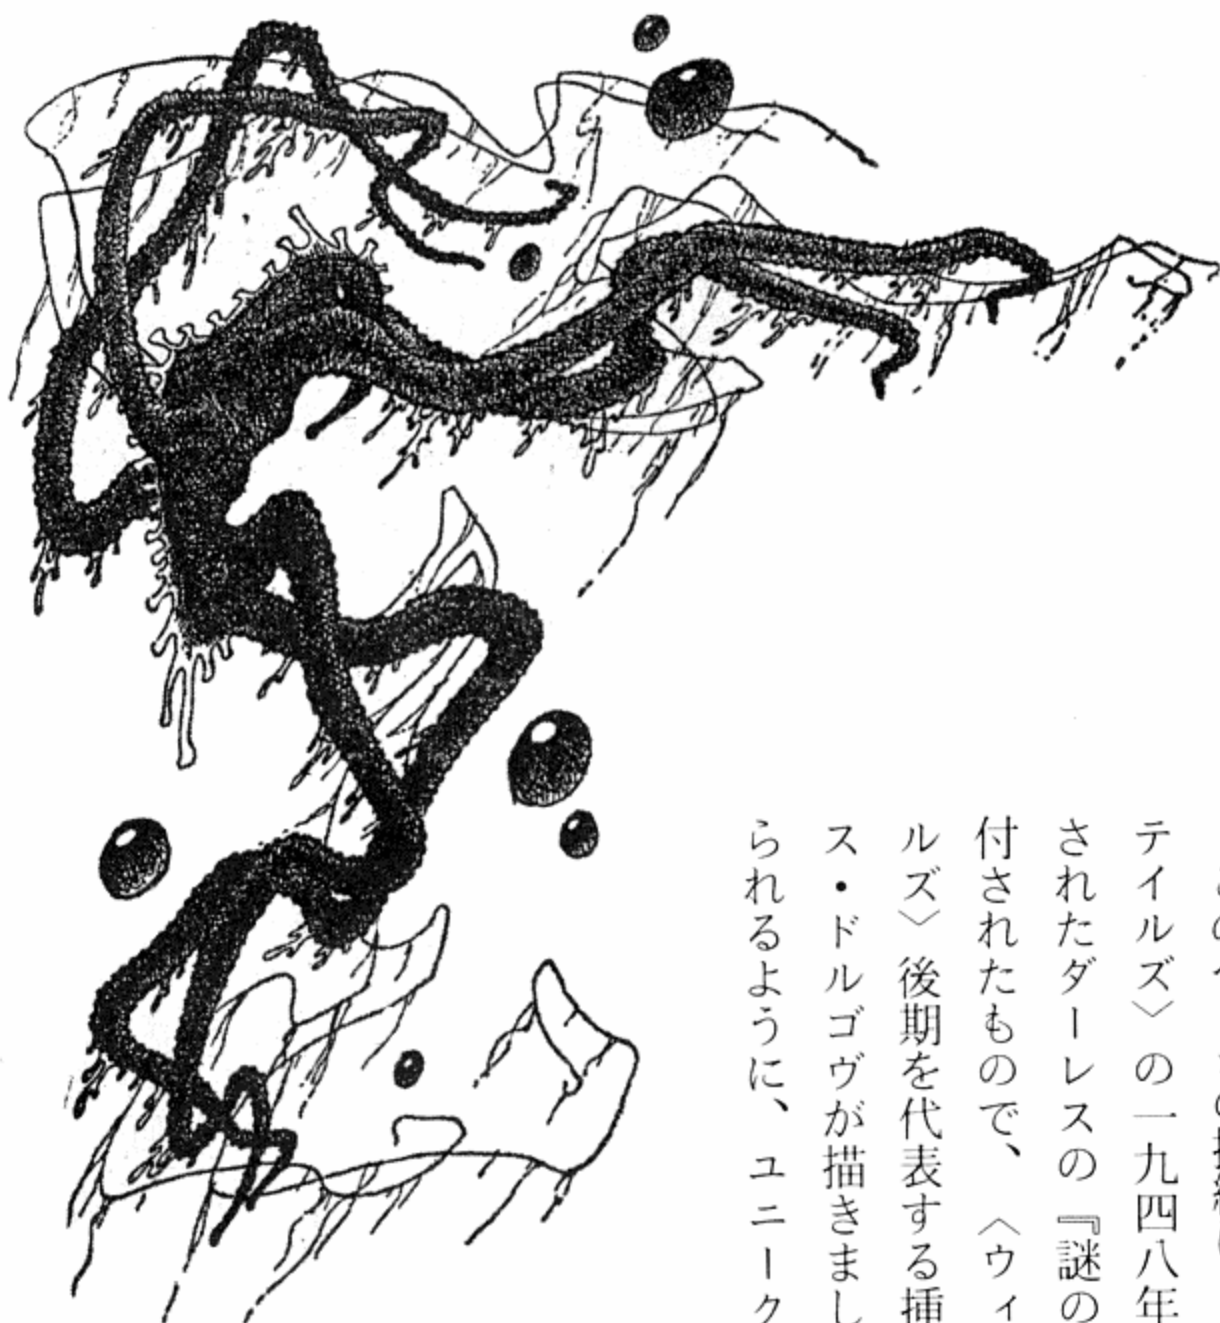 テイルズ〉の一九四八年
されたダーレスの『謎の
付されたもので、〈ウィ
ルズ〉後期を代表する挿
ス・ドルゴヴが描きまし
られるように、ユニーク